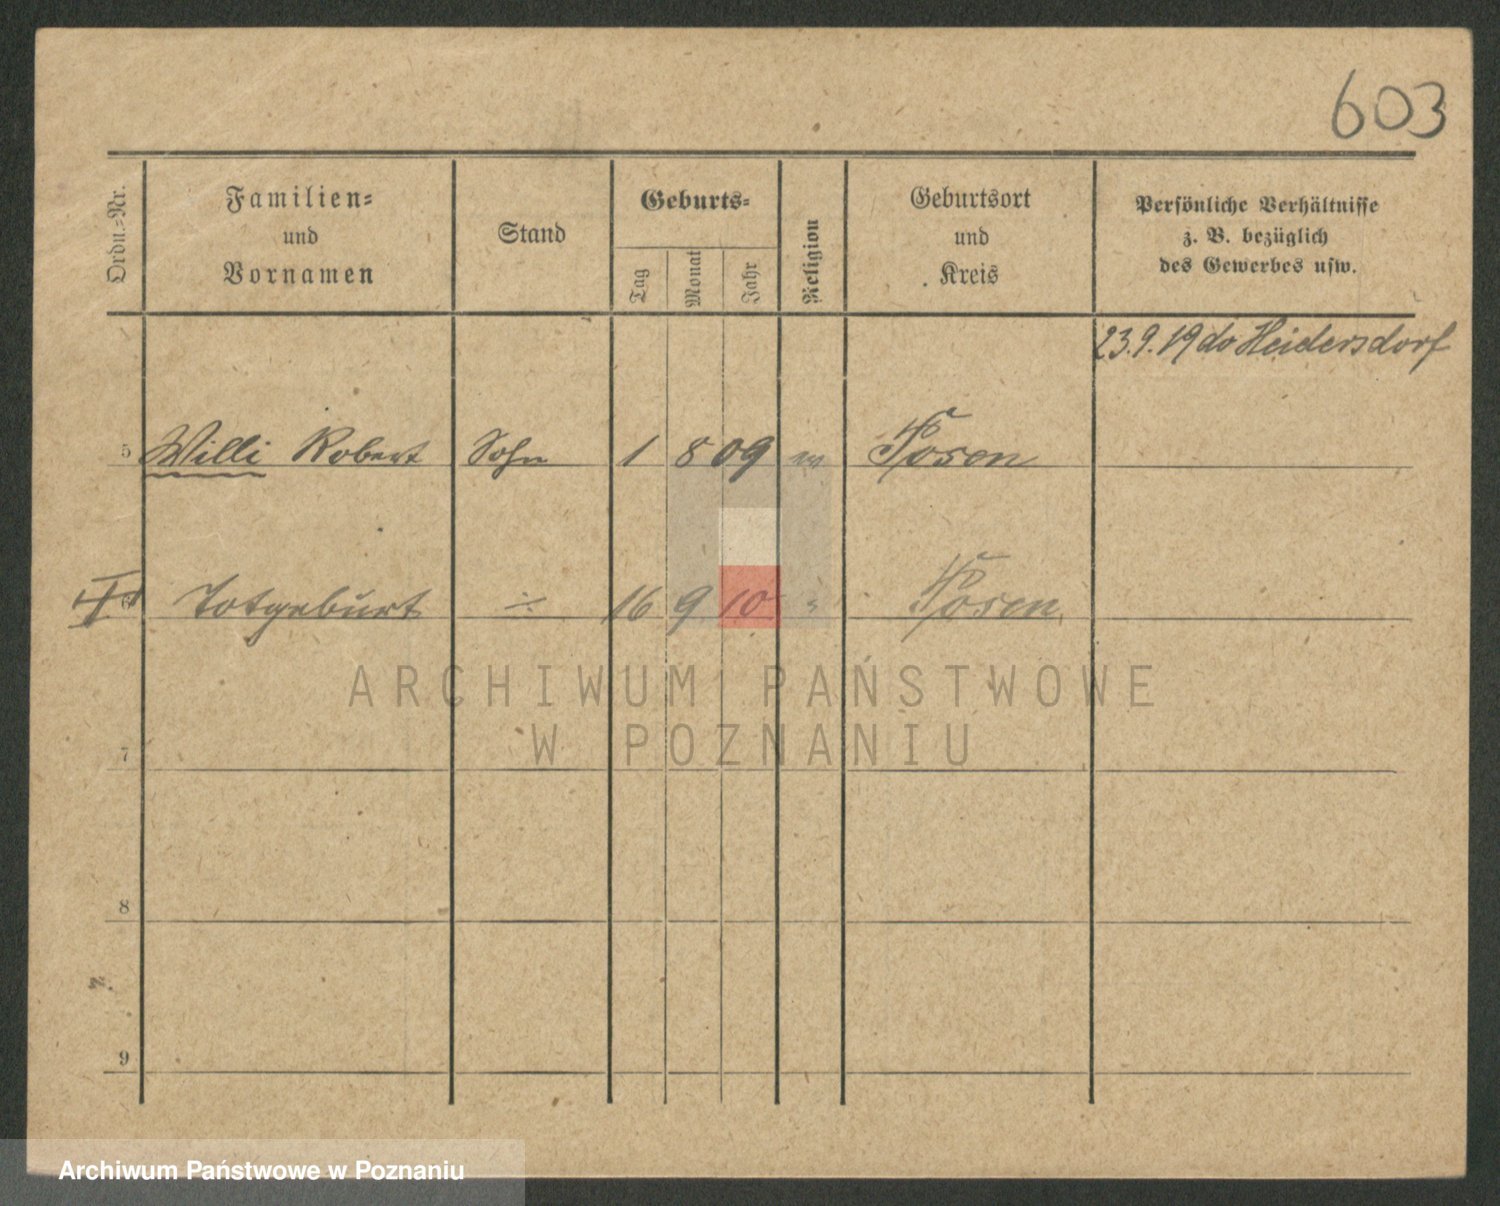 603
Ordn.-Nr.
Familien-
und
Vornamen
Stand
Geburts-
Tag
Monat
Jahr
Religion
Geburtsort
und
Kreis
Persönliche Verhältnisse
z. B. bezüglich
des Gewerbes usw.
23.9.19 do Heidersdorf
5 Willi Robert Sohn 1 8 09 Posen
6 Totgeburt ÷ 16 9 10 " Posen
ARCHIWUM PAŃSTWOWE
W POZNANIU
7
8
9
Archiwum Państwowe w Poznaniu